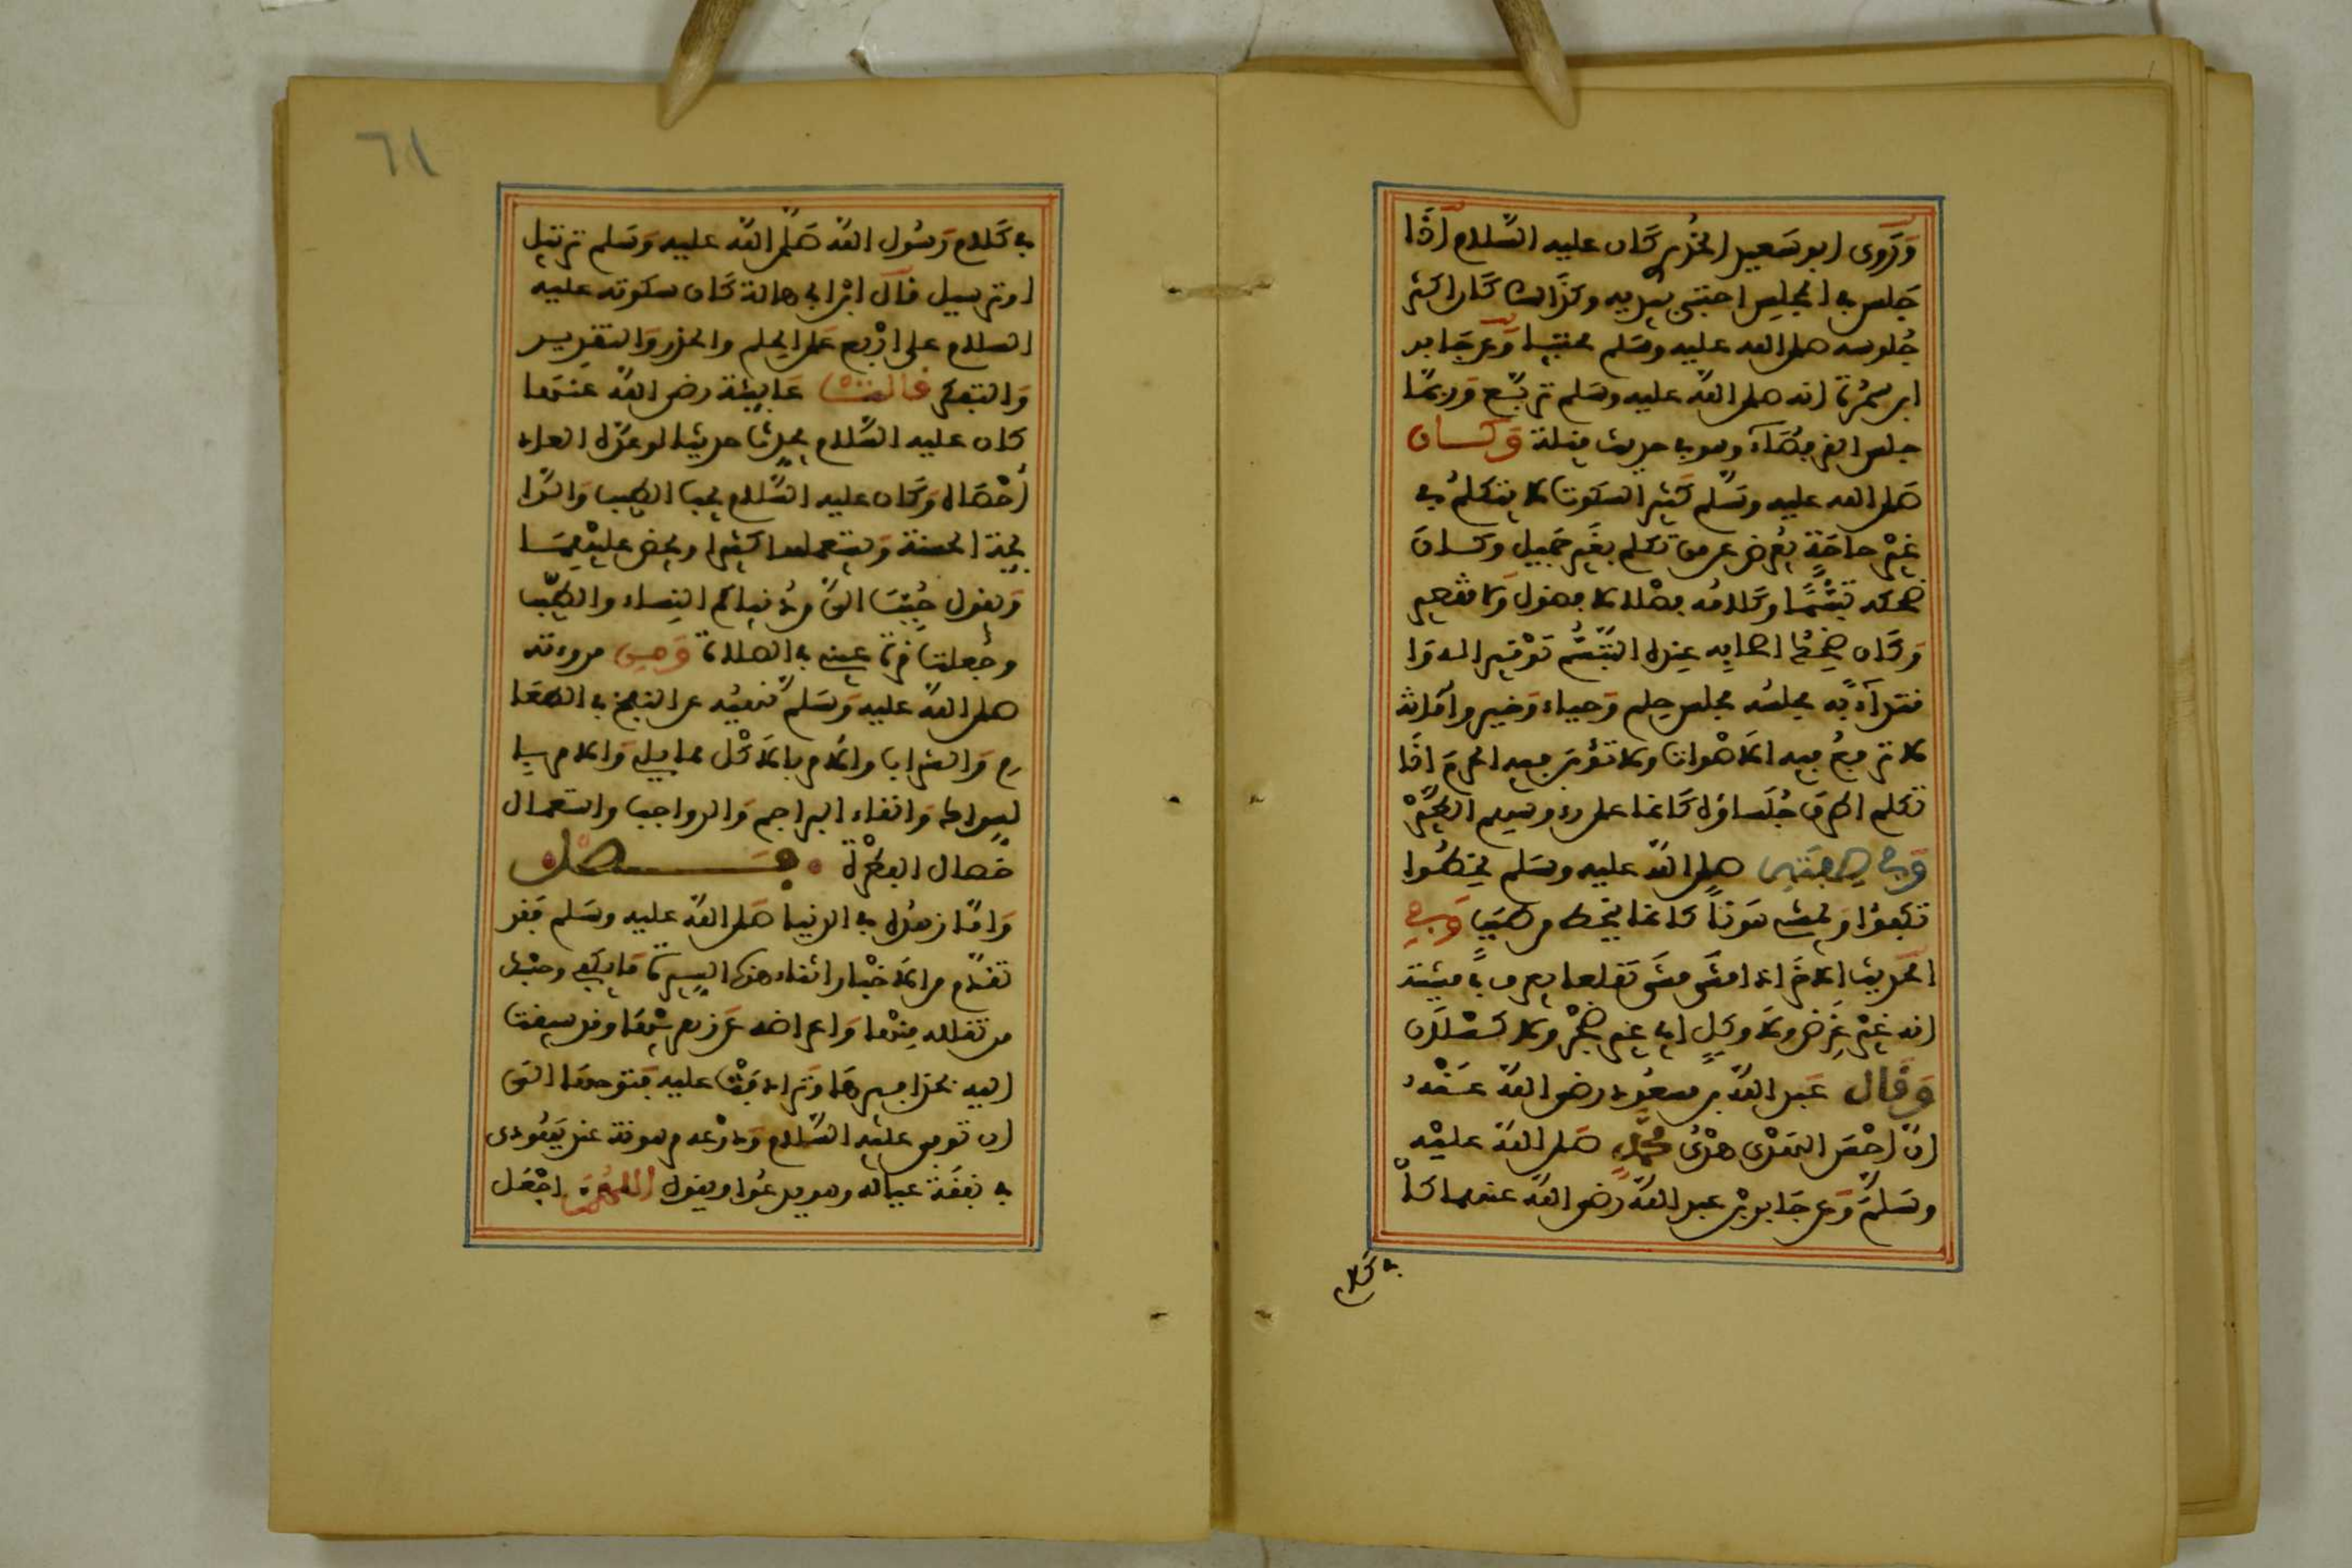 وَرَوى ابو سَعيد الخُدري كَان عليه السّلام اذَا
جَلس في المجلِس احتبى بيَديه وكذَالك كَان اكثر
جُلوسه صلى الله عليه وسَلم محتبيا وَعَن جَابر
ابن سمُرة انه صلى الله عليه وسَلم تربَّع وَربمَا
جلس القرفصَاءَ وهو في حديث قيلة وَكـان
صَلى الله عليه وسَلم كَثير السكوت لا يتكلمُ في
غيْر حاجَةٍ يُعرض عن من تكلم بغَير جَميل وكـانَ
ضحكه تبَسُّمًا وكَلامُه فصْلا لا فضول وَلا تقصير
وَكَان ضِحْكُ اصحابِه عِنده التّبَسُّم تَوْقيرا له وَا
قتداءً به مجلسُه مجلس حِلم وَحياء وَخير وامَانة
لا ترفعُ فيه الاَصْوات ولا تؤبَن فيه الحرمَ اذَا
تكلم اطرق جُلَساؤه كَانما على رءوسهم الطيْرُ
وَفي صِفَتِه صلى الله عليه وسَلم يخطُوا
تكفؤا وَيمشي هَونا كانما ينحط من صَبَب وَفي
الحَديث الاخَر اذا مشَى مشَى مجتمعا يعرف في مشيته
انه غيْر غَرِض ولا وكِلٍ اي غير ضجْر ولا كسْلَان
وَقَال عَبد الله بن مسعُود رضي الله عَنْهُ
انّ احْسَن الهَدْي هدْيُ محمَّد صَلى الله عليْه
وسَلمَ وَعن جَابر بْن عبد الله رَضي الله عنهما كاَنَ
في كَلام
٦١
في كَلام رَسُول الله صَلَّى الله عليه وَسَلم ترتيل
او ترسيل قالَ ابْن ابي هالة كَان سكوته عليه
السلام على ارْبع عَلى الحِلم والحذر وَالتقدير
وَالتفكر قالت عَايشة رضي الله عنهَا
كان عليه السَّلام يحدّث حديثا لو عَدّه العاد
أحْصَاه وَكَان عليه السَّلام يحب الطيب وَالرَّا
يحة الحسنة وَيستعملها كثيرا ويحض عليْهِمَا
وَيقول حُبِّبَ اليَّ من دُنياكم النِساء والطيّب
وجُعلت قرة عيني في الصلاة وَمن مروءته
صلى اللهُ عليه وَسَلم نهيُه عن النفخ في الطعَا
م وَالشراب والاَمر بالاَكْل مما يلي وَالامر بالـ
سواك وَانقاء البراجم وَالرواجب واستعمال
خصال الفطْرة فـصـل
وَامّا زهدُه في الدنيا صَلى الله عليه وسَلم فقد
تقدّم من الاَخْبار اثناء هذه السيرة مَا يكفي وحسْبك
من تقلله مِنْها وَاعراضه عَن زهرتها وقد سيقت
اليه بحذافيرهَا وَترادفتْ عليه فتوحهَا الى
ان توفي عليْه السَّلام وَدرْعه مرهونة عند يَهُودي
في نفقَة عياله وهو يدعُوا ويقول اللهُمَّ اجْعَل